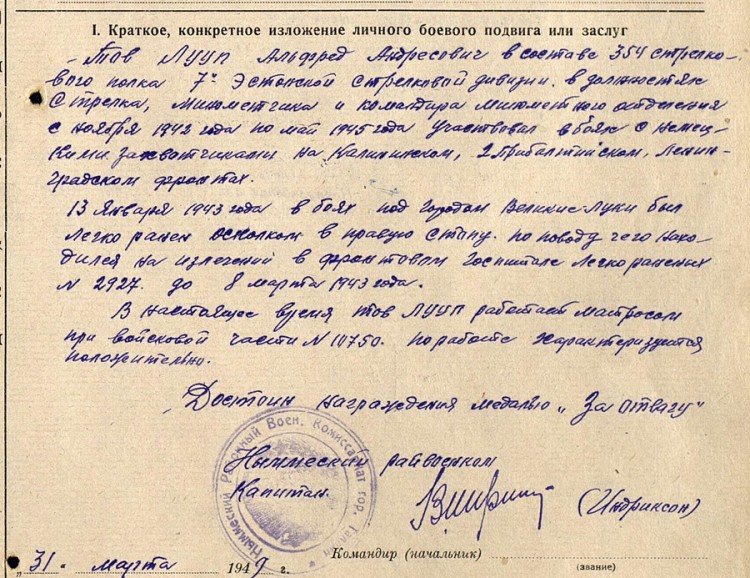 I. Краткое, конкретное изложение личного боевого подвига или заслуг
Тов ЛУУП Альфред Андресович в составе 354 стрелко-
вого полка 7й Эстонской Стрелковой дивизии. в должностях
Стрелка, Минометчика и командира Минометного отделения
с ноября 1942 года по май 1945 года Участвовал в боях с немец-
кими захватчиками на Калининском, 2 Прибалтийском, Ленин-
градском фронтах.
13 Января 1943 года в боях под городом Великие-Луки был
Легко ранен осколком в правую стопу. по поводу чего нахо-
дился на излечении в фронтовом Госпитале Легкораненых
N 2927. до 8 марта 1943 года.
В настоящее время тов ЛУУП работает матросом
при войсковой части N 10750. по работе характеризуется
положительно.
Достоин награждения медалью „За отвагу"
Ныммеский райвоенком
Капитан. (Индриксон)
Ныммеский Районный Воен. Комиссариат гор.
Командир (начальник)
(звание)
„31" марта 1947 г.